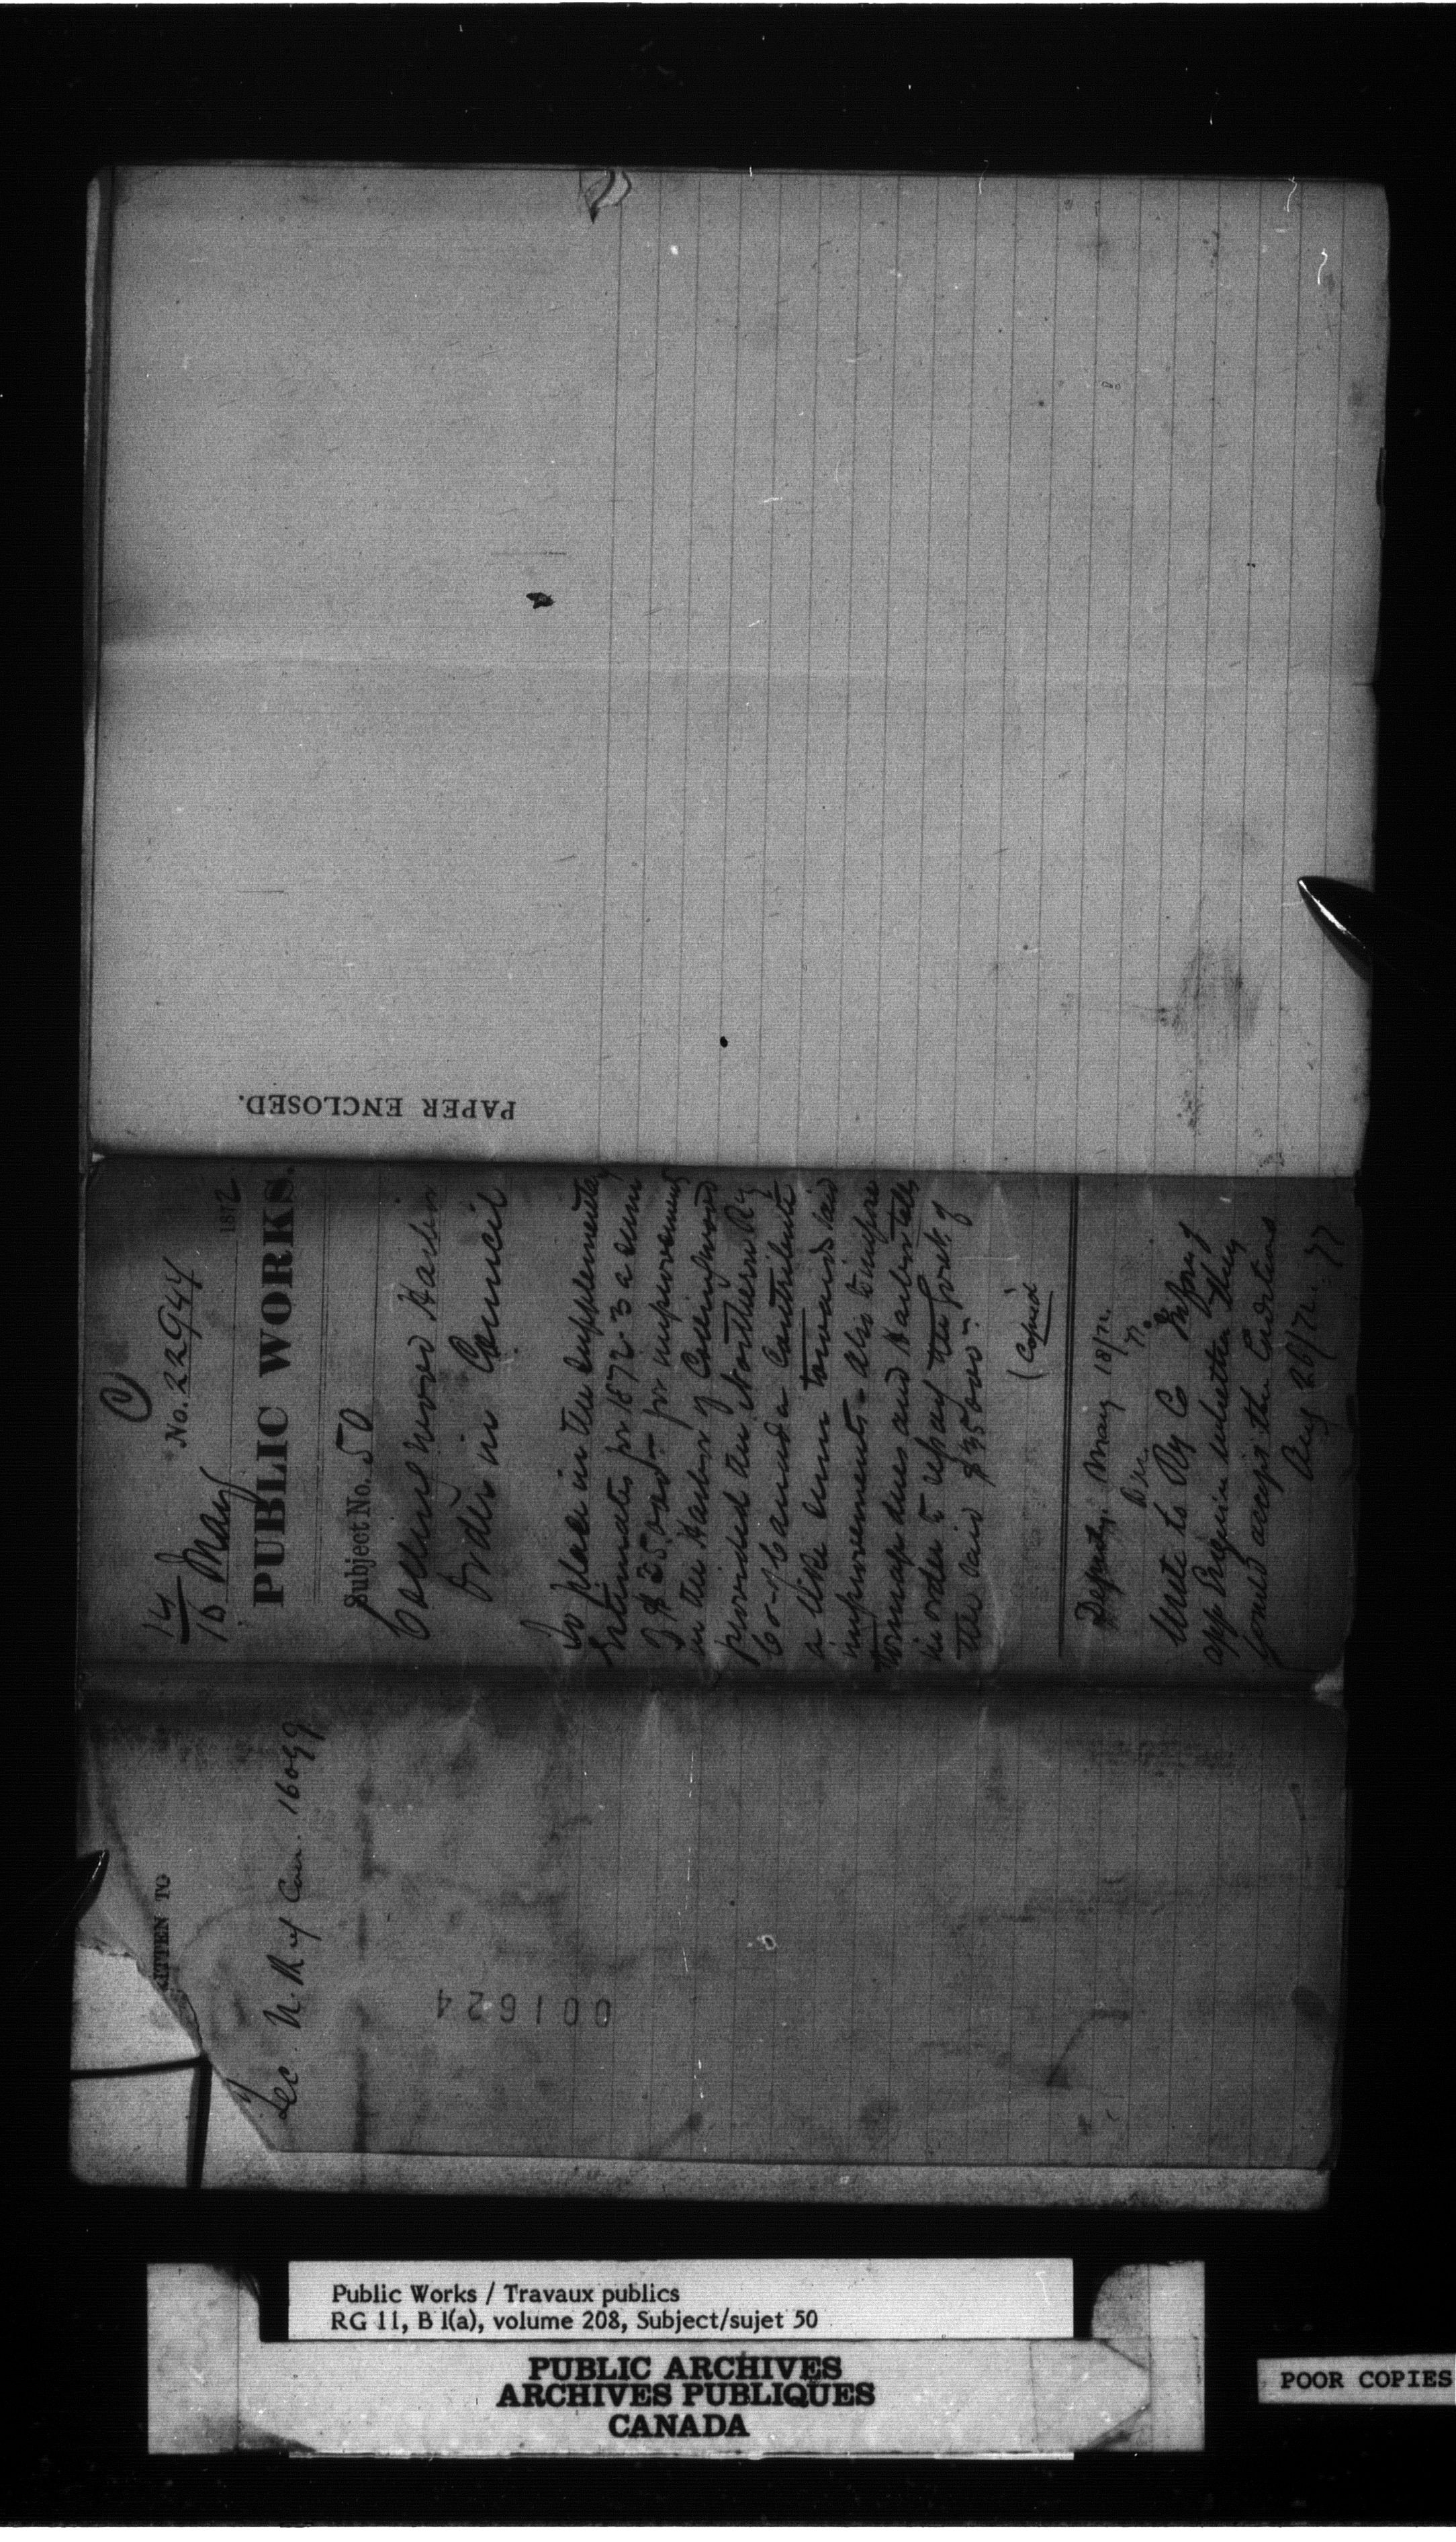 PAPER ENCLOSED.
C
No. 22944
14
16 May 1872
PUBLIC WORKS.
Subject No. 50
Collingwood Harbor
Order in Council
To place in the supplementary
Estimates for 1872-3 a sum
of $35,000 for improvement
in the Harbor of Collingwood
provided the Northern Ry
Co. and contribute
a like sum towards said
improvements - also to impose
tonnage dues and Harbor tolls
in order to repay the Govt. of
the said $35,000.
(Copied
Deputy. May 18/72.
Write to Ry Co
app Enquire whether they
would accept the Conditions
Aug 26/72.
RITTEN TO
Sec. N. Rwy Can. 16099
001624
Public Works / Travaux publics
RG 11, B 1(a), volume 208, Subject/sujet 50
PUBLIC ARCHIVES
ARCHIVES PUBLIQUES
CANADA
POOR COPIES